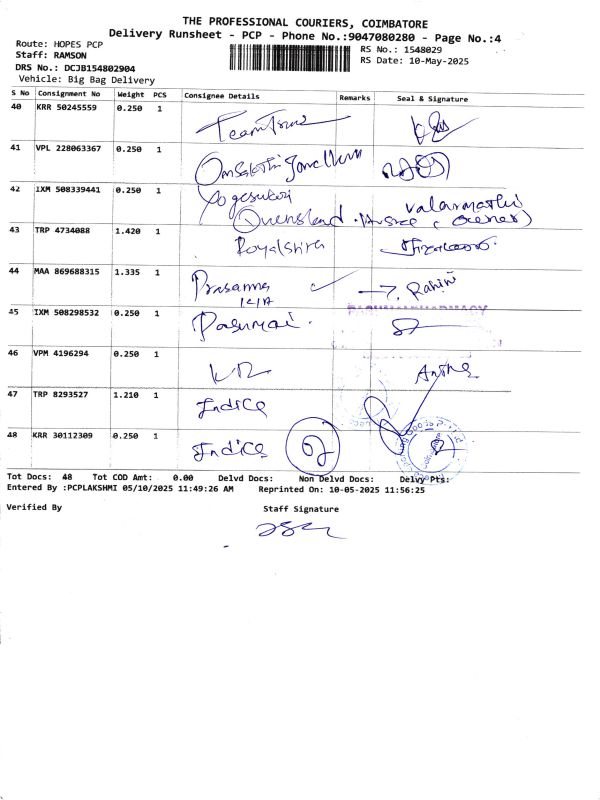 THE PROFESSIONAL COURIERS, COIMBATORE
Delivery Runsheet - PCP - Phone No.:9047080280 - Page No.:4
Route: HOPES PCP
RS No.: 1548029
Staff: RAMSON
RS Date: 10-May-2025
DRS No.: DCJB154802904
Vehicle: Big Bag Delivery
S No Consignment No Weight PCS Consignee Details Remarks Seal & Signature
40 KRR 50245559 0.250 1
41 VPL 228063367 0.250 1
42 IXM 508339441 0.250 1 Yogeswari Valarmathi
Queensland (owner)
43 TRP 4734088 1.420 1 Royalshira
44 MAA 869688315 1.335 1 Prasanna
45 IXM 508298532 0.250 1 Pasumai
46 VPM 4196294 0.250 1
47 TRP 8293527 1.210 1 Indica
48 KRR 30112309 0.250 1 Indica
Tot Docs: 48 Tot COD Amt: 0.00 Delvd Docs: Non Delvd Docs: Delvy Pts:
Entered By :PCPLAKSHMI 05/10/2025 11:49:26 AM Reprinted On: 10-05-2025 11:56:25
Verified By Staff Signature